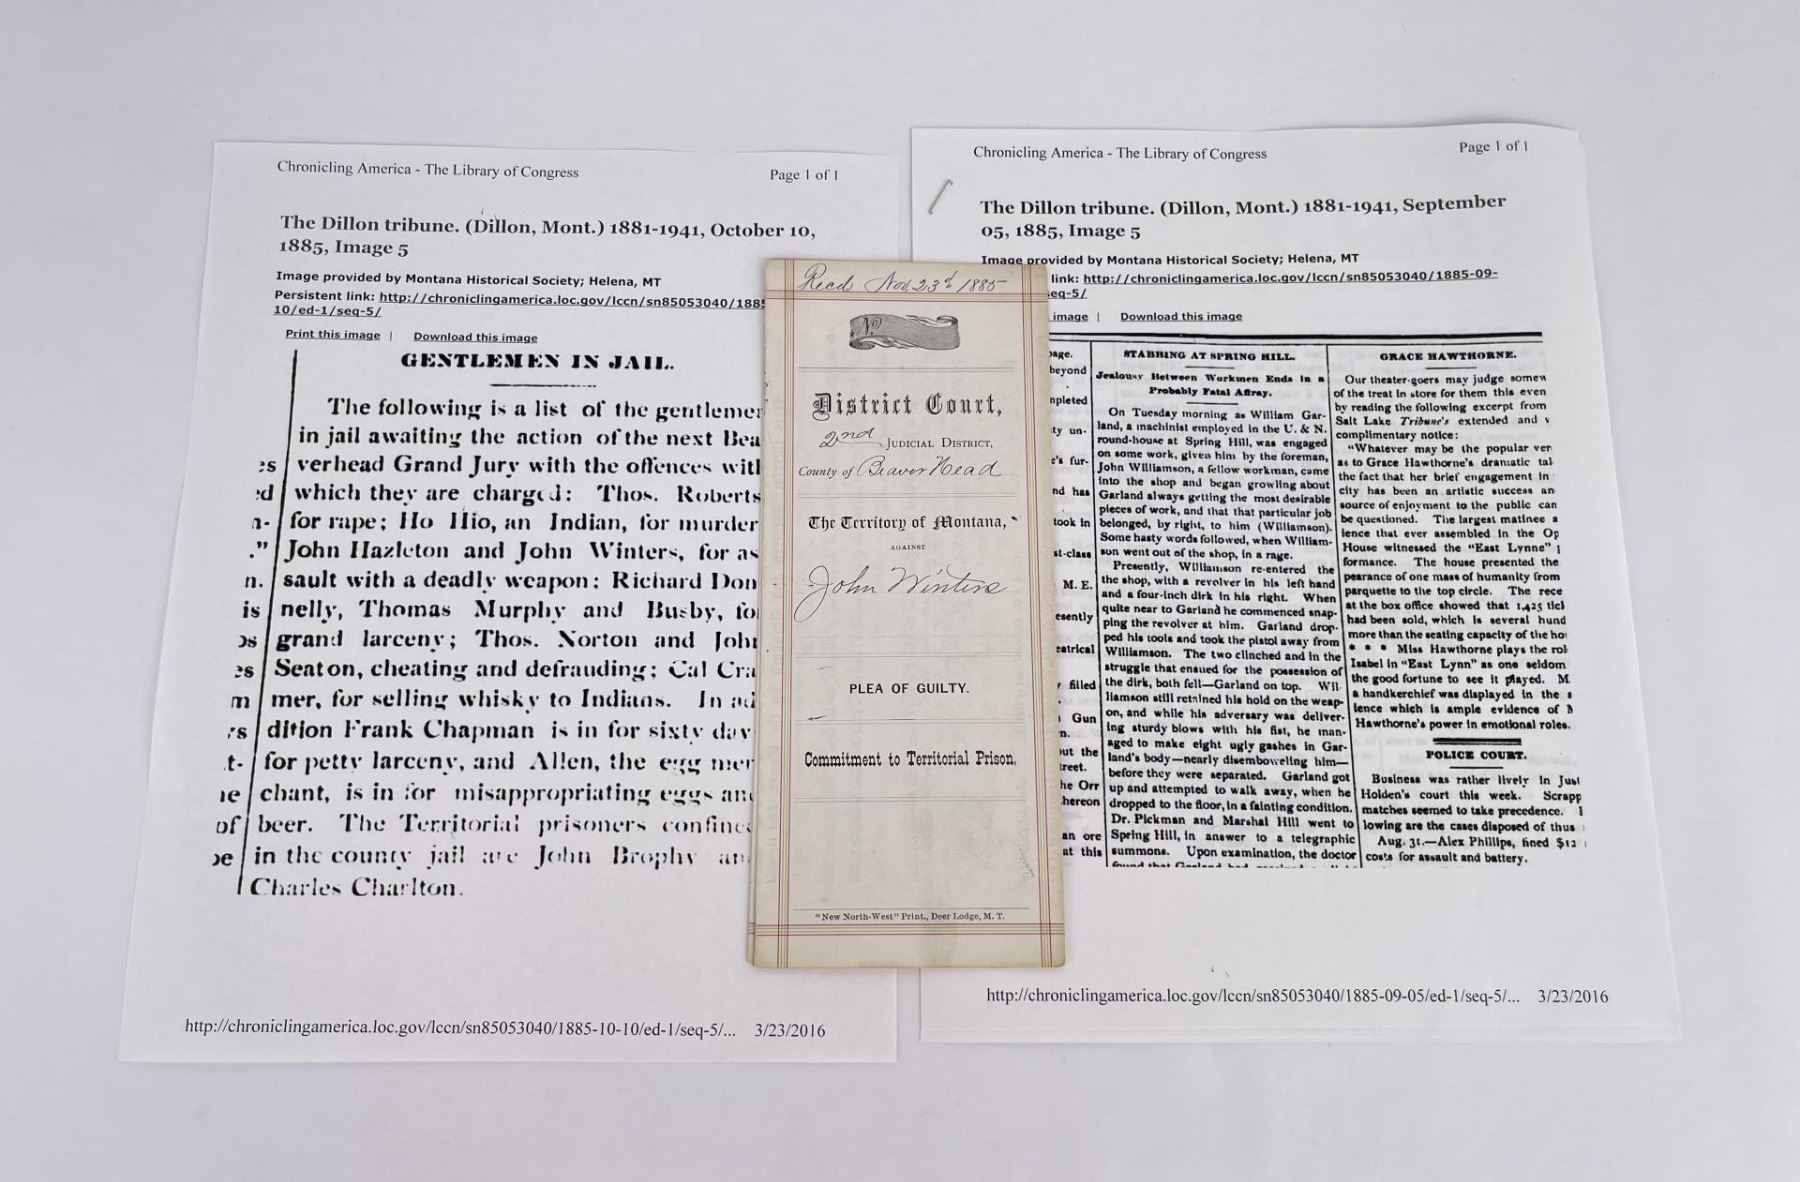 Chronicling America - The Library of Congress
Page 1 of 1
The Dillon tribune. (Dillon, Mont.) 1881-1941, October 10,
1885, Image 5
Image provided by Montana Historical Society; Helena, MT
Persistent link: http://chroniclingamerica.loc.gov/lccn/sn85053040/1885
10/ed-1/seq-5/
Print this image | Download this image
GENTLEMEN IN JAIL.
The following is a list of the gentlemen
in jail awaiting the action of the next Bea
es verhead Grand Jury with the offences with
ed which they are charged: Thos. Roberts
n- for rape; Ho Hio, an Indian, for murder
." John Hazleton and John Winters, for as
n. sault with a deadly weapon: Richard Don
is nelly, Thomas Murphy and Busby, fo
os grand larceny; Thos. Norton and John
es Seaton, cheating and defrauding; Cal Cra
m mer, for selling whisky to Indians. In ad
rs dition Frank Chapman is in for sixty day
t- for petty larceny, and Allen, the egg mer
ie chant, is in for misappropriating eggs and
of beer. The Territorial prisoners confined
be in the county jail are John Brophy an
Charles Charlton.
http://chroniclingamerica.loc.gov/lccn/sn85053040/1885-10-10/ed-1/seq-5/... 3/23/2016
Recd Nov, 23d 1885
No.
District Court,
2nd JUDICIAL DISTRICT,
County of Beaver Head
The Territory of Montana,
AGAINST
John Winters
PLEA OF GUILTY.
Commitment to Territorial Prison.
"New North-West" Print., Deer Lodge, M. T.
Chronicling America - The Library of Congress
Page 1 of 1
The Dillon tribune. (Dillon, Mont.) 1881-1941, September
05, 1885, Image 5
Image provided by Montana Historical Society; Helena, MT
link: http://chroniclingamerica.loc.gov/lccn/sn85053040/1885-09-
seq-5/
image | Download this image
page.
beyond
npleted
ty un-
e's fur-
nd has
took in
st-class
M. E.
esently
eatrical
filled
Gun
n.
out the
treet.
he Orr
hereon
an ore
at this
STABBING AT SPRING HILL.
Jealousy Between Workmen Ends in a
Probably Fatal Affray.
On Tuesday morning as William Gar-
land, a machinist employed in the U. & N.
round-house at Spring Hill, was engaged
on some work, given him by the foreman,
John Williamson, a fellow workman, came
into the shop and began growling about
Garland always getting the most desirable
pieces of work, and that that particular job
belonged, by right, to him (Williamson).
Some hasty words followed, when William-
son went out of the shop, in a rage.
Presently, Williamson re-entered the
the shop, with a revolver in his left hand
and a four-inch dirk in his right. When
quite near to Garland he commenced snap-
ping the revolver at him. Garland drop-
ped his tools and took the pistol away from
Williamson. The two clinched and in the
struggle that ensued for the possession of
the dirk, both fell—Garland on top. Wil-
liamson still retained his hold on the weap-
on, and while his adversary was deliver-
ing sturdy blows with his fist, he man-
aged to make eight ugly gashes in Gar-
land's body—nearly disemboweling him—
before they were separated. Garland got
up and attempted to walk away, when he
dropped to the floor, in a fainting condition.
Dr. Pickman and Marshal Hill went to
Spring Hill, in answer to a telegraphic
summons. Upon examination, the doctor
found that Garland had
GRACE HAWTHORNE.
Our theater-goers may judge somew
of the treat in store for them this even
by reading the following excerpt from
Salt Lake Tribune's extended and v
complimentary notice:
"Whatever may be the popular ver
as to Grace Hawthorne's dramatic tal
the fact that her brief engagement in
city has been an artistic success an
source of enjoyment to the public can
be questioned. The largest matinee a
ience that ever assembled in the Op
House witnessed the "East Lynne" p
formance. The house presented the
pearance of one mass of humanity from
parquette to the top circle. The rece
at the box office showed that 1,425 tick
had been sold, which is several hund
more than the seating capacity of the ho
* * * Miss Hawthorne plays the rol
Isabel in "East Lynn" as one seldom
the good fortune to see it played. M
a handkerchief was displayed in the a
ience which is ample evidence of M
Hawthorne's power in emotional roles.
POLICE COURT.
Business was rather lively in Just
Holden's court this week. Scrapp
matches seemed to take precedence.
lowing are the cases disposed of thus
Aug. 31.—Alex Phillips, fined $12
costs for assault and battery.
http://chroniclingamerica.loc.gov/lccn/sn85053040/1885-09-05/ed-1/seq-5/... 3/23/2016